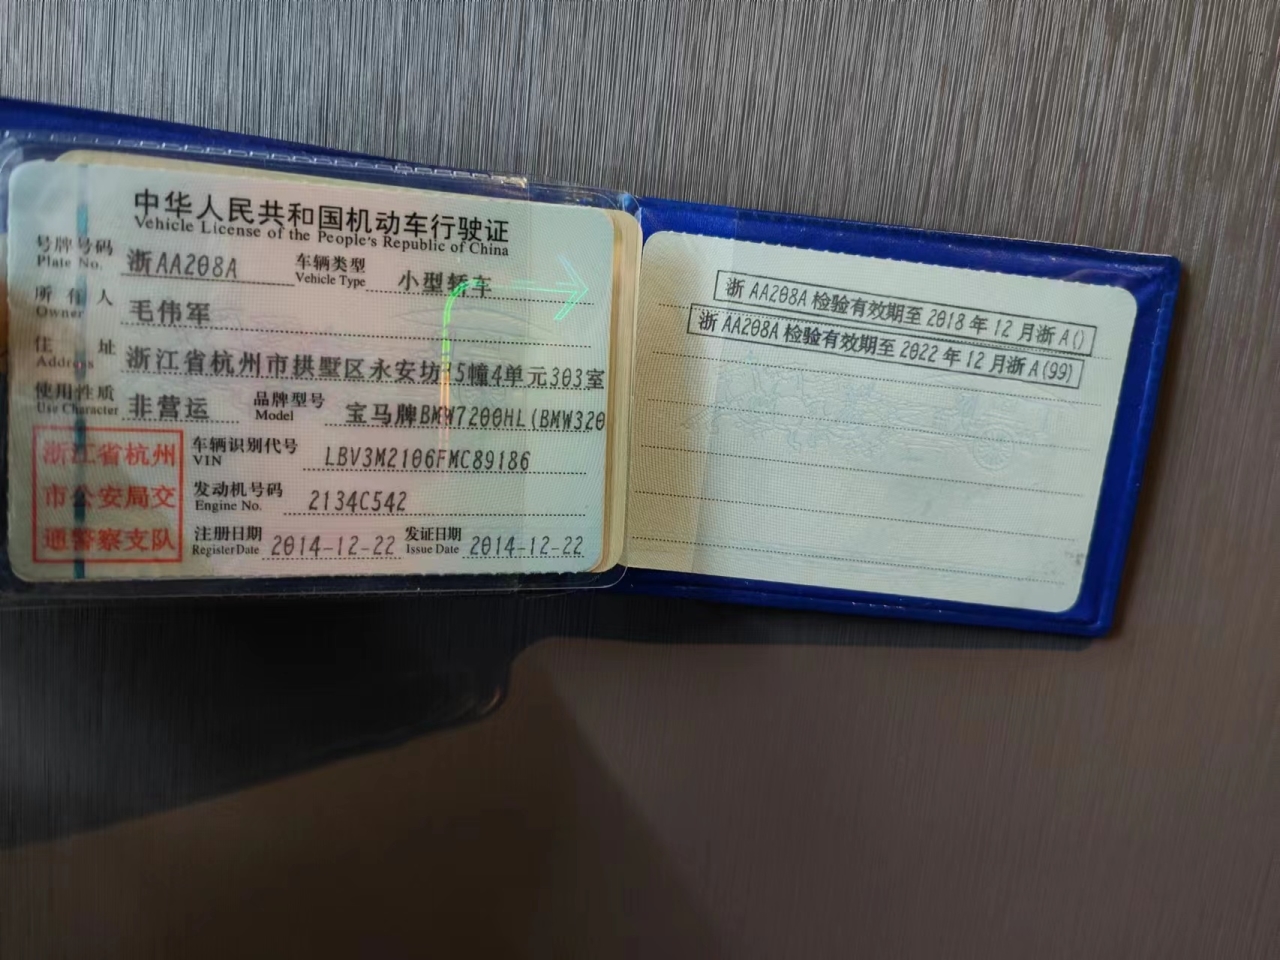 中华人民共和国机动车行驶证
Vehicle License of the People's Republic of China
号牌号码 浙AA208A 车辆类型 小型轿车
Plate No. Vehicle Type
所有人 毛伟军
Owner
住址 浙江省杭州市拱墅区永安坊15幢4单元303室
Address
使用性质 非营运 品牌型号 宝马牌BMW7200HL(BMW320
Use Character Model
浙江省杭州
市公安局交
通警察支队
车辆识别代号 LBV3M2106FMC89186
VIN
发动机号码 2134C542
Engine No.
注册日期 2014-12-22 发证日期 2014-12-22
Register Date Issue Date
浙AA208A检验有效期至2018年12月浙A()
浙AA208A检验有效期至2022年12月浙A(99)